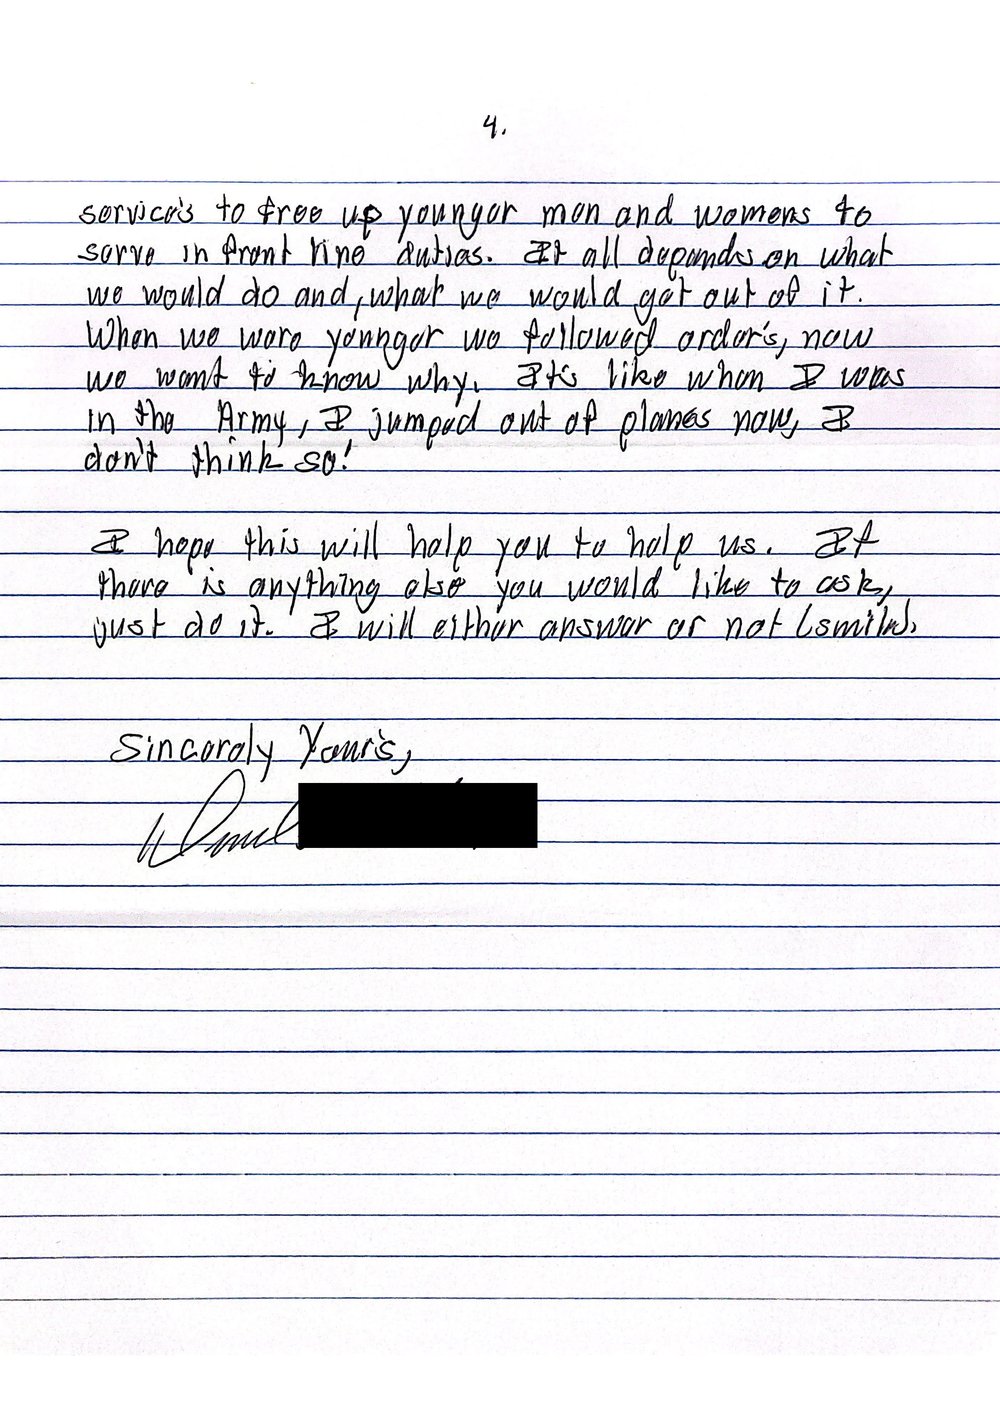 4.
service's to free up younger men and womens to
serve in front line duties. It all depends on what
we would do and, what we would get out of it.
When we were younger we followed order's, now
we want to know why. It's like when I was
in the Army, I jumped out of planes now, I
don't think so!
I hope this will help you to help us. If
there is anything else you would like to ask,
just do it. I will either answer or not (smile).
Sincerely Your's,